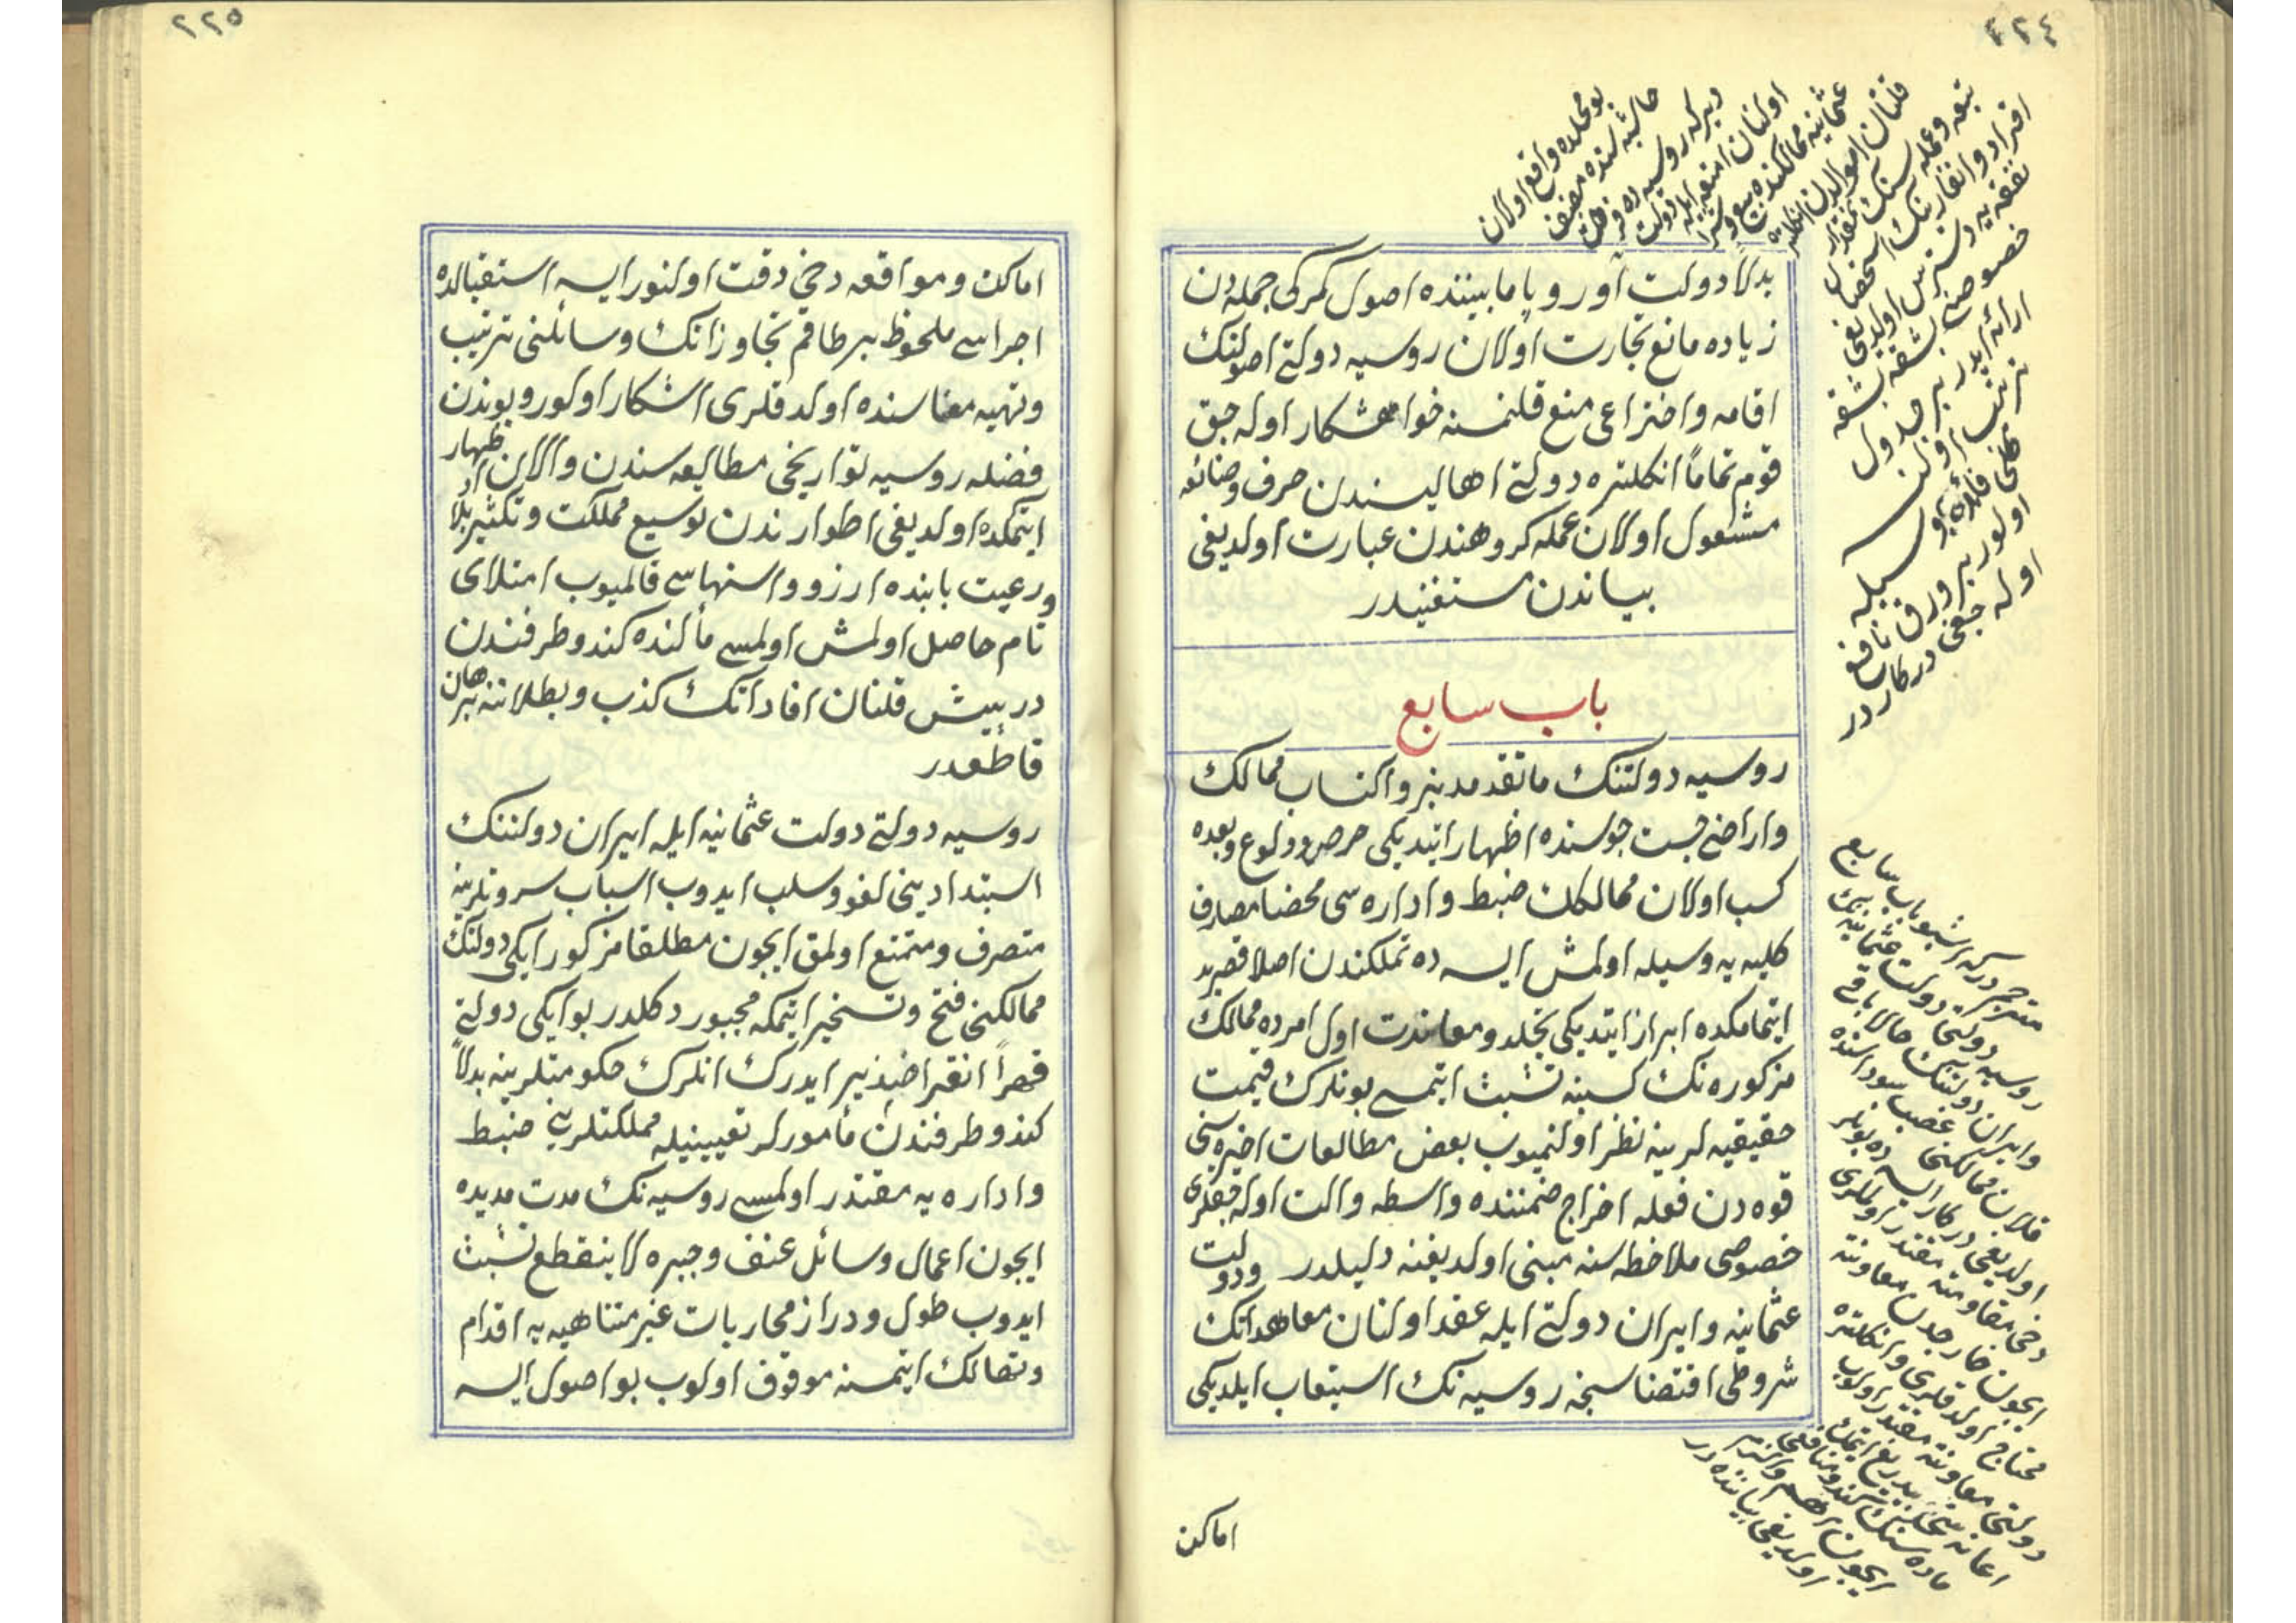 ٢٢٤
بو محلده واقع اولان
حاشیه‌سنده مصنف
دیر که روسیه ده
اولنان امتعه ایله دولت
عثمانیه ممالکنده بیع و شرا
قلنان اموالدن
تبعه و عمله سنك
افراد و انفارینك
نفقه یه دسترس اولدیغی
خصوصی بشقه بشقه
ارائه ایدر بر جدول
ترتیب اولنسه
اولور بر ورق نافع
اوله جغی درکاردر
بدلا دولت آوروپا مابیننده اصول کمرکی جمله دن
زیاده مانع تجارت اولان روسیه دولتی اصولنك
اقامه و اختراعی منع قلنمسنه خواهشکار اوله جق
قوم تماما انکلتره دولتی اهالیسندن حرف و صنائعه
مشغول اولان عمله کروهندن عبارت اولدیغی
بیاندن مستغنیدر
باب سابع
روسیه دولتنك ماتقدمدنبرو اکتساب ممالك
و اراضی جست جوسنده اظهار ایتدیکی حرص و ولوع و بعده
کسب اولان ممالکك ضبط و اداره سی محضا مصارف
کلیه یه وسیله اولمش ایسه ده تملکندن اصلا قصر ید
ایتمامکده ابراز ایتدیکی تجلد و معاندت اول امرده ممالك
مزکوره نك کسبنه تشبث ایتمسی بونلرك قیمت
حقیقیه لرینه نظر اولنمیوب بعض مطالعات اخیره سنی
قوه دن فعله اخراج ضمننده واسطه و الت اوله جقلری
خصوصی ملاحظه سنه مبنی اولدیغنه دلیلدر ودولت
عثمانیه و ایران دولتی ایله عقد اولنان معاهداتك
شروطی اقتضاسنجه روسیه نك استیعاب ایلدیکی
مترجم دیر که اشبو باب سابع
روسیه دولتی دولت عثمانیه نك
و ایران دولتنك حالا باقی
قلان ممالکنی غصب سوداسنده
اولدیغی درکار ایسه ده بونلر
دخی مقاومته مقتدر اولملری
ایچون خارجدن معاونته
محتاج اولدقلری و انکلتره
دولتی معاونته مقتدر اولوب
اولدیغی بیاننده در
اماکن
٢٢٥
اماکن و مواقعه دخی دقت اولنور ایسه استقبالده
اجراسی ملحوظ بر طاقم تجاوزاتك وسائلنی ترتیب
و تهیه معناسنده اولدقلری اشکار اولور و بوندن
فضله روسیه تواریخی مطالعه سندن و الان اظهار
ایتمکده اولدیغی اطوارندن توسیع مملکت و تکثیر بلاد
و رعیت بابنده ارزو و اشتهاسی قالمیوب امتلای
تام حاصل اولمش اولمسی مألنده کندو طرفندن
در پیش قلنان افاداتك کذب و بطلاننه برهان
قاطعدر
روسیه دولتی دولت عثمانیه ایله ایران دولتنك
استبدادینی لغو و سلب ایدوب اسباب سروتلرینه
متصرف و متمتع اولمق ایچون مطلقا مزکور ایکی دولتك
ممالکنی فتح و تسخیر ایتمکه مجبور دکلدر بو ایکی دولتی
قهرا انقراضپذیر ایدرك انلرك حکومتلرینه بدلا
کندو طرفندن مأمورلر تعیینیله مملکتلرینی ضبط
و اداره یه مقتدر اولمسی روسیه نك مدت مدیده
ایچون اعمال وسائل عنف و جبره لاینقطع تشبث
ایدوب طول و دراز محاربات غیر متناهیه یه اقدام
و تهالك ایتمسنه موقوف اولوب بو اصول ایسه